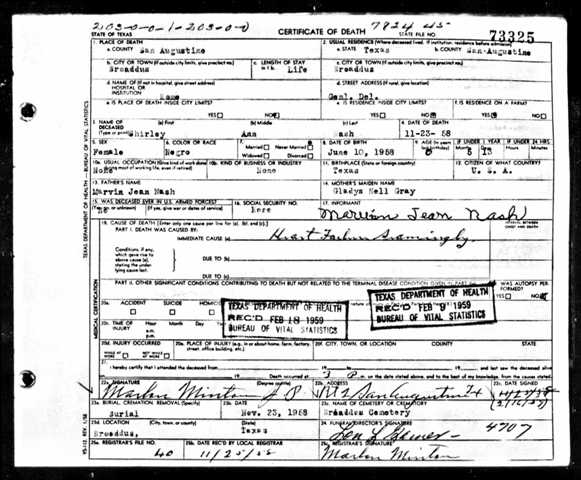 203-0-0-1-203-0-0
7924 45-
STATE OF TEXAS
CERTIFICATE OF DEATH
STATE FILE NO.
73325
1. PLACE OF DEATH
a. COUNTY San Augustine
2. USUAL RESIDENCE (Where deceased lived. If institution, residence before admission)
a. STATE Texas
b. COUNTY San-Augustine
b. CITY OR TOWN (If outside city limits, give precinct no.)
Broaddus
c. LENGTH OF STAY
in 1 b. Life
c. CITY OR TOWN (If outside city limits, give precinct no.)
Broaddus
d. NAME OF (If not in hospital, give street address)
HOSPITAL OR
INSTITUTION
d. STREET ADDRESS (If rural, give location)
Genl. Del.
e. IS PLACE OF DEATH INSIDE CITY LIMITS?
YES NO
e. IS RESIDENCE INSIDE CITY LIMITS?
YES NO
f. IS RESIDENCE ON A FARM?
YES NO
3. NAME OF
DECEASED
(Type or print)
(a) First
Shirley
(b) Middle
Ann
(c) Last
Nash
4. DATE OF DEATH
11-23- 58
5. SEX
Female
6. COLOR OR RACE
Negro
7. Married Never Married
Widowed Divorced
8. DATE OF BIRTH
June 10, 1958
9. AGE (In years last birthday)
IF UNDER 1 YEAR
5 13
IF UNDER 24 HRS
10a. USUAL OCCUPATION (Give kind of work done
during most of working life, even if retired)
None
10b. KIND OF BUSINESS OR INDUSTRY
None
11. BIRTHPLACE (State or foreign country)
Texas
12. CITIZEN OF WHAT COUNTRY?
U. S. A.
13. FATHER'S NAME
Marvin Jean Nash
14. MOTHER'S MAIDEN NAME
Gladys Nell Gray
15. WAS DECEASED EVER IN U.S. ARMED FORCES?
(Yes, no, or unknown) (If yes, give war or dates of service)
no
16. SOCIAL SECURITY NO.
17. INFORMANT
Marvin Jean Nash
18. CAUSE OF DEATH [Enter only one cause per line for (a), (b), and (c).]
PART I. DEATH WAS CAUSED BY:
IMMEDIATE CAUSE (a)
Heart Failure
INTERVAL BETWEEN
ONSET AND DEATH
Conditions, if any,
which gave rise to
above cause (a),
stating the under-
lying cause last.
DUE TO (b)
DUE TO (c)
PART II. OTHER SIGNIFICANT CONDITIONS CONTRIBUTING TO DEATH BUT NOT RELATED TO THE TERMINAL DISEASE CONDITION GIVEN IN PART I(a)
19. WAS AUTOPSY PERFORMED?
YES NO
20a. ACCIDENT SUICIDE HOMICIDE
TEXAS DEPARTMENT OF HEALTH
REC'D FEB 18 1959
BUREAU OF VITAL STATISTICS
TEXAS DEPARTMENT OF HEALTH
REC'D FEB 9 1959
BUREAU OF VITAL STATISTICS
20c. TIME OF
INJURY
Hour Month Day Year
20d. INJURY OCCURRED
20e. PLACE OF INJURY (e.g., in or about home, farm, factory,
street, office building, etc.)
20f. CITY, TOWN, OR LOCATION
COUNTY
STATE
21. I hereby certify that I attended the deceased from
and last saw the deceased alive
on
19
Death occurred at
m. on the date stated above, and to the best of my knowledge, from the causes stated
22a. SIGNATURE
(Degree or title)
Marlon Minton J P
22b. ADDRESS
San Augustine Tx
22c. DATE SIGNED
23a. BURIAL, CREMATION, REMOVAL (Specify)
Burial
23b. DATE
Nov. 23, 1958
23c. NAME OF CEMETERY OR CREMATORY
Broaddus Cemetery
23d. LOCATION (City, town, or county)
Broaddus,
(State)
Texas
24. FUNERAL DIRECTOR'S SIGNATURE
4707
25a. REGISTRAR'S FILE NO.
40
25b. DATE REC'D BY LOCAL REGISTRAR
11/25/58
25c. REGISTRAR'S SIGNATURE
Marlon Minton
MEDICAL CERTIFICATION